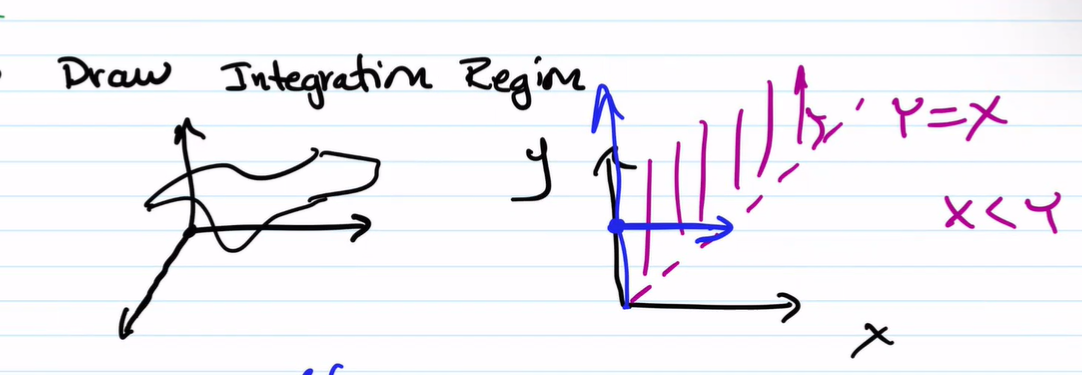 Draw Integration Region
y
Y=X
X<Y
x